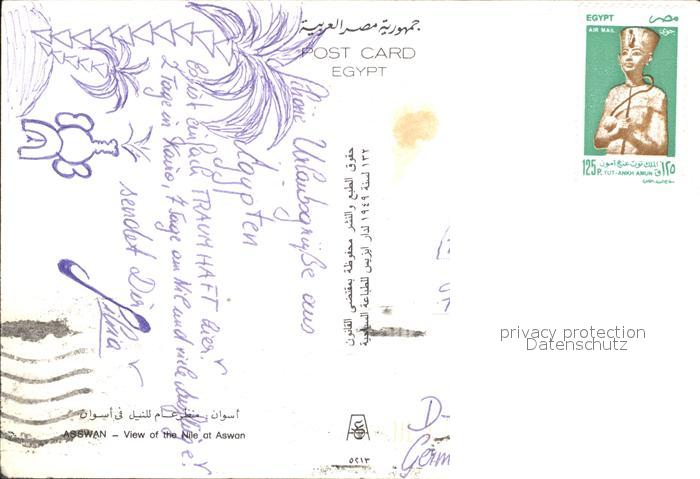 جمهورية مصر العربية
POST CARD
EGYPT
EGYPT مصر
AIR MAIL بريد جوى
الملك توت عنخ آمون
125 P. ١٢٥
TUT-ANKH AMUN
Schöne Urlaubsgrüße aus
Ägypten
Es ist einfach TRAUMHAFT hier.
2 Tage in Kairo, 7 Tage am Nil und viele Ausflüge!
sendet Dir
Silvia
حقوق الطبع والنشر محفوظة بمقتضى القانون
١٣٢ لسنة ١٩٤٩ لدار ايزيس للطباعة السياحية
privacy protection
Datenschutz
أسوان - منظر عام للنيل فى أسوان
ASSWAN – View of the Nile at Aswan
٥٢١٣
D-
Germ